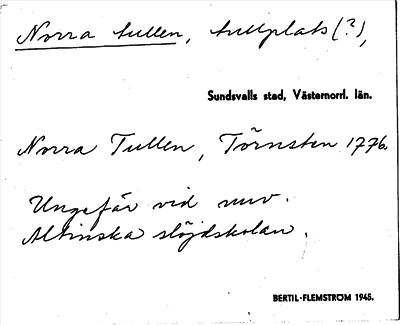 Norra tullen, tullplats (?),
Sundsvalls stad, Västernorrl. län.
Norra Tullen, Törnsten 1776.
Ungefär vid nuv.
Altinska slöjdskolan.
BERTIL FLEMSTRÖM 1945.